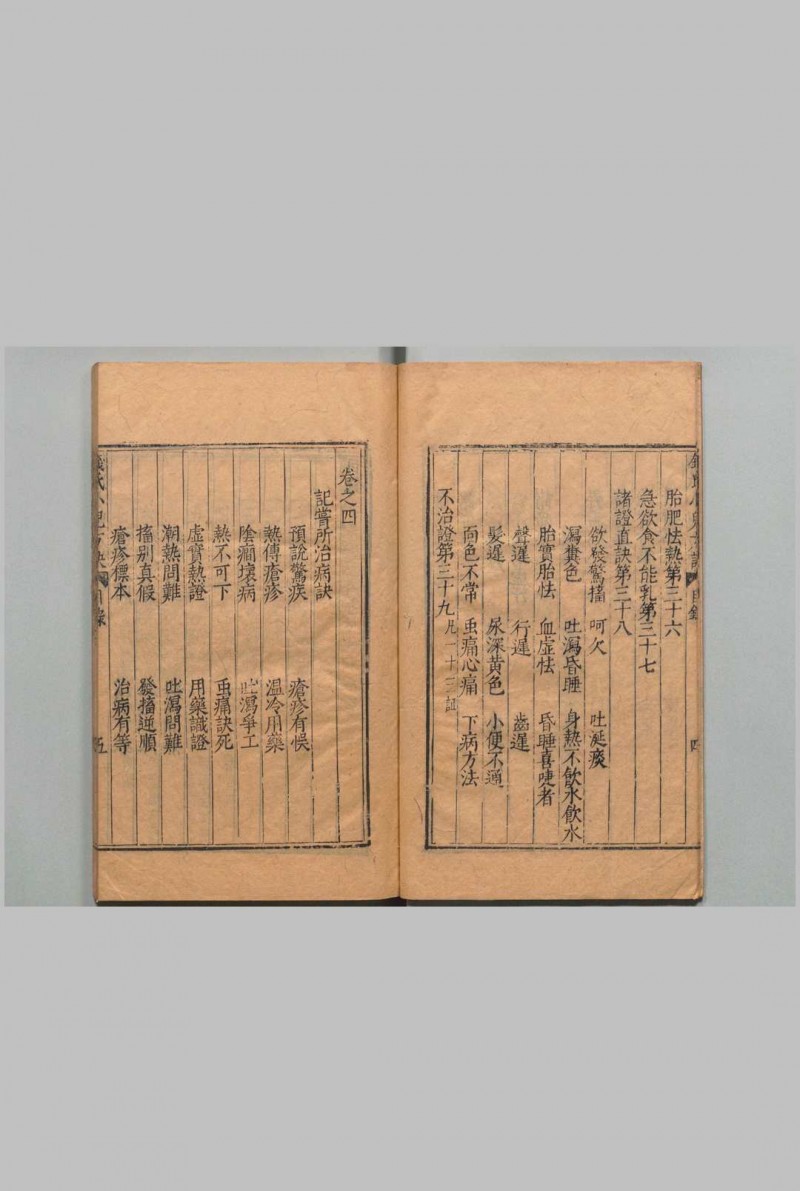 胎肥怯熱第三十六
急欲食不能乳第三十七
諸證直訣第三十八
欲發驚搐 呵欠 吐涎痰
瀉糞色 吐瀉昏睡 身熱不飲水飲水
胎實胎怯 血虛怯 昏睡喜嚏者
聲遲 行遲 齒遲
髮遲 尿深黃色 小便不通
面色不常 虫痛心痛 下病方法
不治證第三十九 凡一十三証
目錄 四
卷之四
記嘗所治病訣
預說驚疾 瘡疹有悞
熱傳瘡疹 温冷用藥
陰癇壞病 吐瀉爭工
熱不可下 虫痛訣死
虛實熱證 用藥識證
潮熱問難 吐瀉問難
搐别真假 發搐逆順
瘡疹標本 治病有等
錢氏小兒方訣 目錄 五